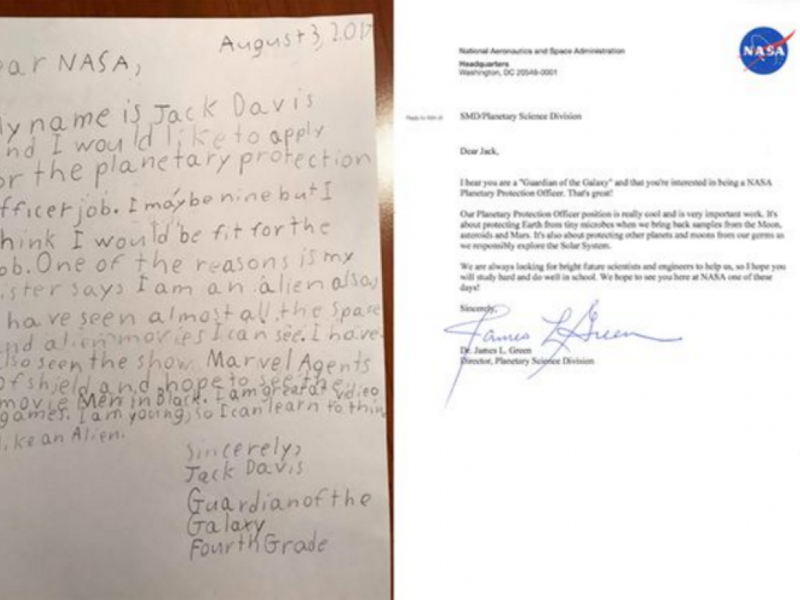 August 3, 2017
ear NASA,
My name is Jack Davis
nd I would like to apply
or the planetary protection
fficer job. I may be nine but I
hink I would be fit for the
ob. One of the reasons is my
ister says I am an alien also,
have seen almost all the space
nd alien movies I can see. I have
lso seen the show Marvel Agents
of shield and hope to see the
movie Men in Black. I am great at vidieo
games. I am young, so I can learn to think
like an Alien.
Sincerely,
Jack Davis
Guardian of the
Galaxy
Fourth Grade
NASA
National Aeronautics and Space Administration
Headquarters
Washington, DC 20546-0001
Reply to Attn of:
SMD/Planetary Science Division
Dear Jack,
I hear you are a "Guardian of the Galaxy" and that you're interested in being a NASA
Planetary Protection Officer. That's great!
Our Planetary Protection Officer position is really cool and is very important work. It's
about protecting Earth from tiny microbes when we bring back samples from the Moon,
asteroids and Mars. It's also about protecting other planets and moons from our germs as
we responsibly explore the Solar System.
We are always looking for bright future scientists and engineers to help us, so I hope you
will study hard and do well in school. We hope to see you here at NASA one of these
days!
Sincerely,
James L Green
Dr. James L. Green
Director, Planetary Science Division